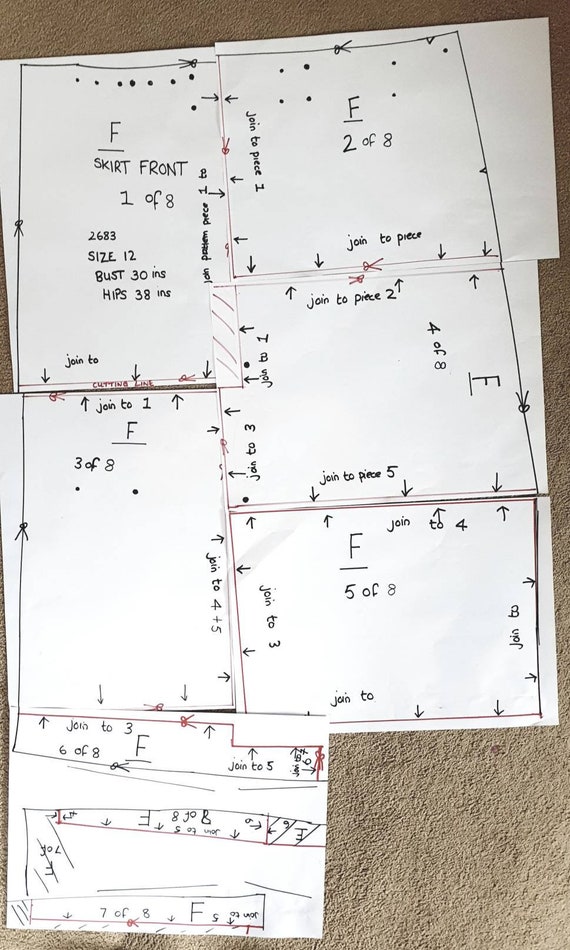 F
SKIRT FRONT
1 of 8
2683
SIZE 12
BUST 30 ins
HIPS 38 ins
join pattern piece 1 to
join to
CUTTING LINE
join to piece 1
F
2 of 8
join to piece
join to piece 2
4 of 8
F
join to 1
join to 3
join to piece 5
join to 1
F
3 of 8
join to 4+5
join to 4
F
5 of 8
join to 3
join to
join to
join to 3
6 of 8
F
join to 5
F
8 of 8
join to 5
6
F
6
7 of 8
F
join to 5